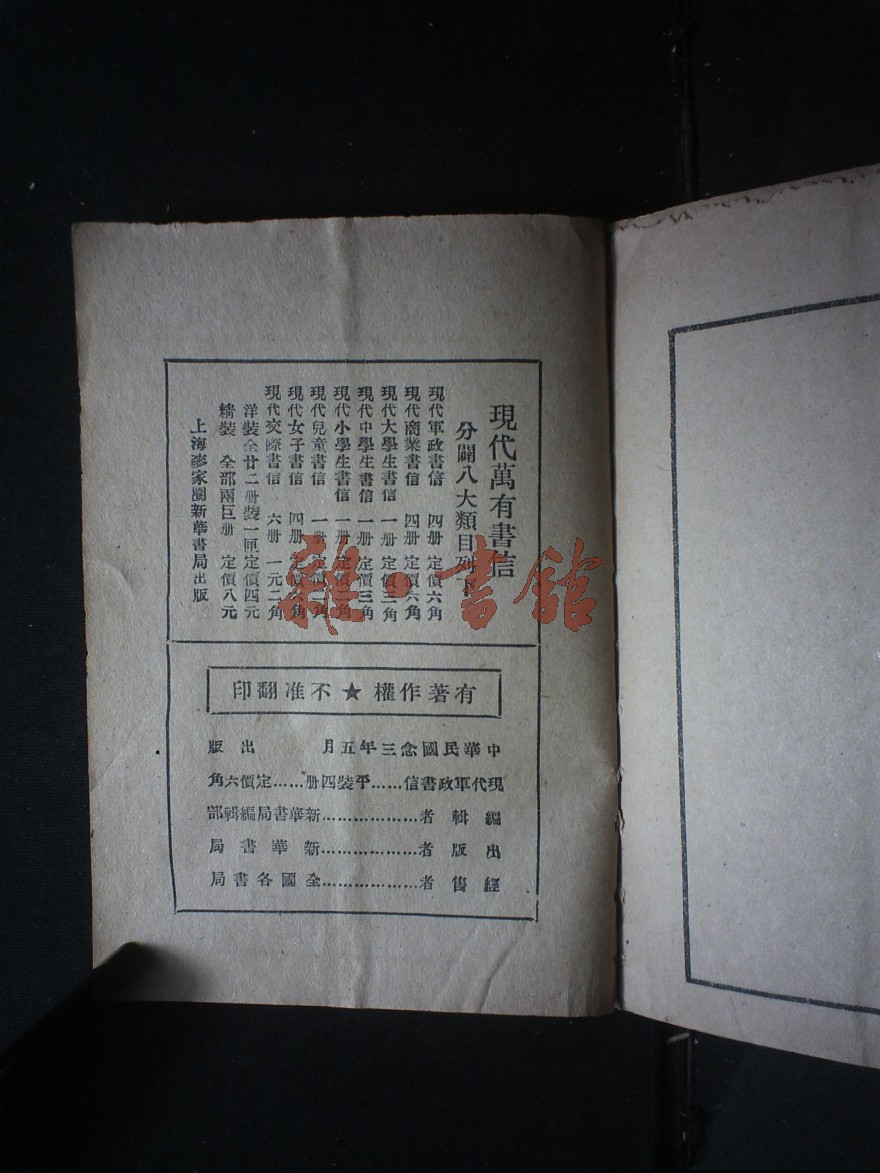 現代萬有書信
分闢八大類目列下
現代軍政書信 四册 定價六角
現代商業書信 四册 定價六角
現代大學生書信 一册 定價三角
現代中學生書信 一册 定價三角
現代小學生書信 一册 定價二角
現代兒童書信 一册 定價二角
現代女子書信 四册 定價六角
現代交際書信 六册 一元二角
洋裝全廿二册裝一匣定價四元
精裝 全部兩巨册 定價八元
上海麥家圈新華書局出版
有著作權★不准翻印
中華民國念三年五月 出版
現代軍政書信……平裝四册……定價六角
編輯者………………新華書局編輯部
出版者………………新華書局
經售者………………全國各書局
雜·書館